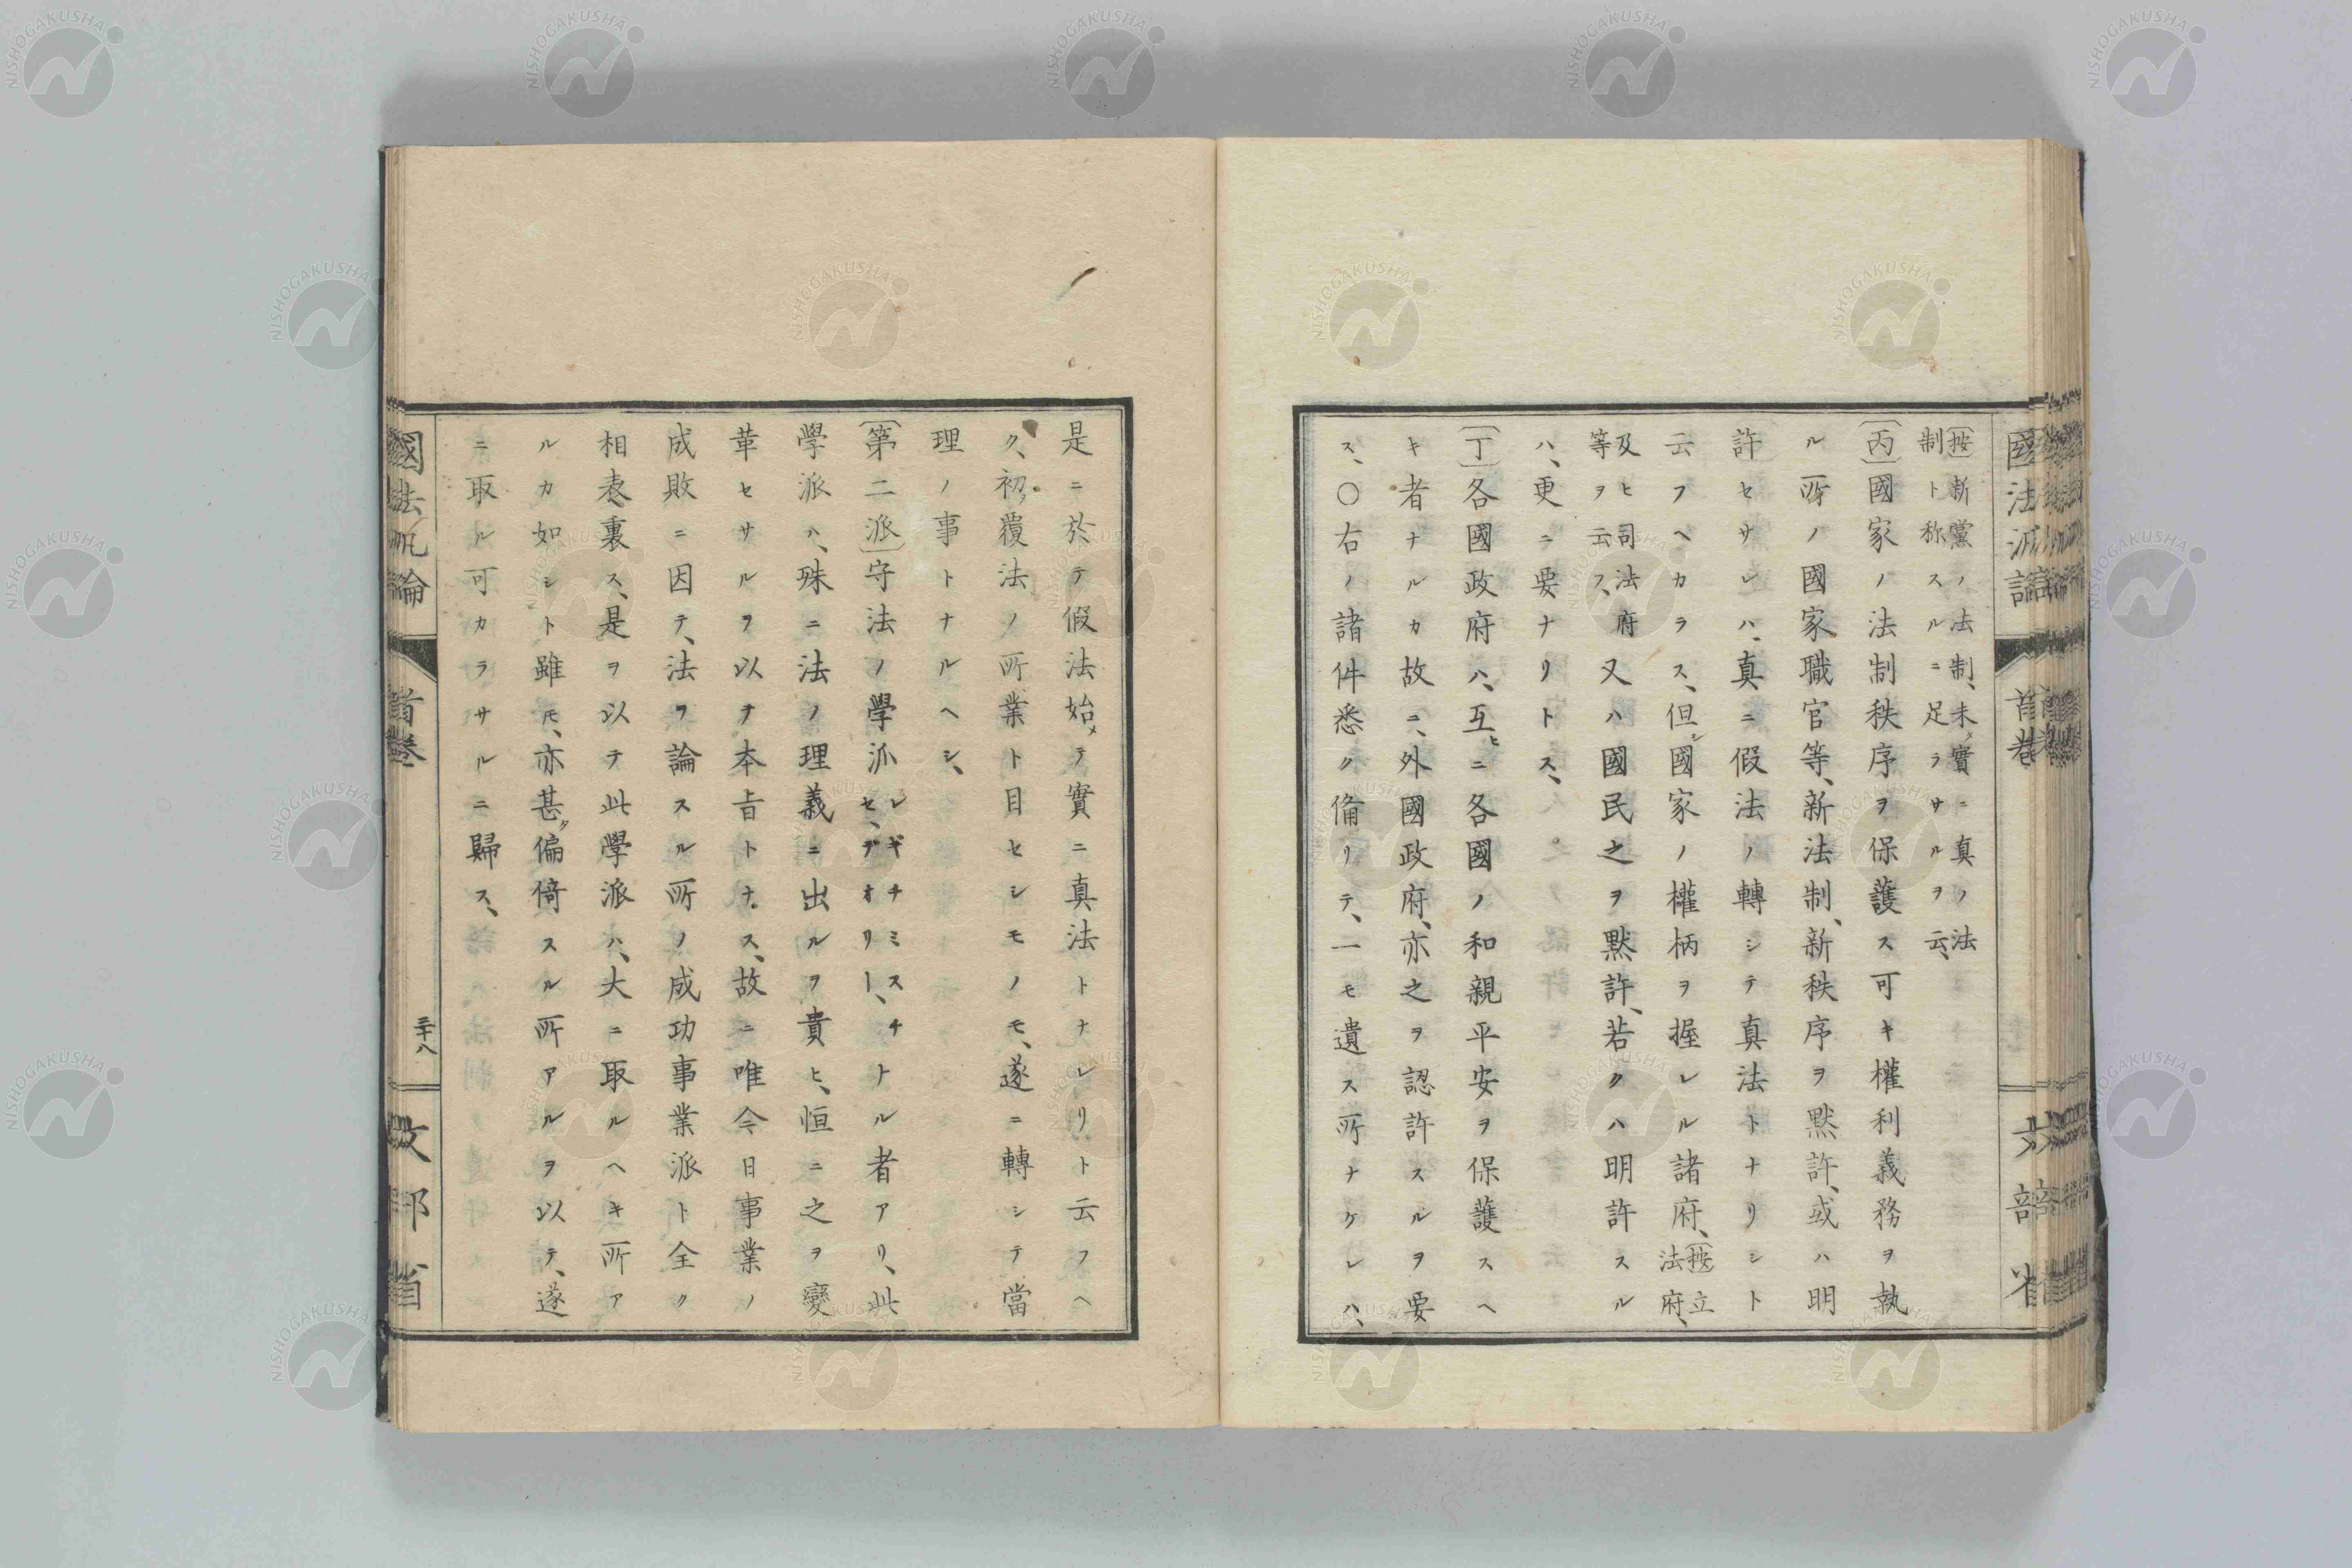 〔按〕新黨ノ法制、未タ實ニ真ノ法
制ト称スルニ足ラサルヲ云、
〔丙〕國家ノ法制秩序ヲ保護ス可キ權利義務ヲ執
ル所ノ國家職官等、新法制、新秩序ヲ黙許、或ハ明
許セサレハ、真ニ假法ノ轉シテ真法トナリシト
云フヘカラス、但シ國家ノ權柄ヲ握レル諸府、〔按〕立法府、
及ヒ司法府等ヲ云フ、又ハ國民之ヲ黙許、若クハ明許スル
ハ、更ニ要ナリトス、
〔丁〕各國政府ハ、互ヒニ各國ノ和親平安ヲ保護スヘ
キ者ナルカ故ニ、外國政府、亦之ヲ認許スルヲ要
ス、〇右ノ諸件悉ク備リテ、一モ遺ス所ナケレハ、
是ニ於テ假法始メテ實ニ真法トナレリト云フヘ
ク、初メ覆法ノ所業ト目セシモノモ、遂ニ轉シテ當
理ノ事トナルヘシ、
〔第二派〕守法ノ學派レギチミスチセ、デオリー、トナル者アリ、此
學派ハ、殊ニ法ノ理義ニ出ルヲ貴ヒ、恒ニ之ヲ變
革セサルヲ以テ本旨トナス、故ニ唯今日事業ノ
成敗ニ因テ、法ヲ論スル所ノ成功事業派ト全ク
相表裏ス、是ヲ以テ此學派ハ、大ニ取ルヘキ所ア
ルカ如シト雖モ、亦甚タ偏倚スル所アルヲ以テ、遂
ニ取ル可カラサルニ歸ス、
國法汎論
首巻
三十八
文部省
NISHOGAKUSHA